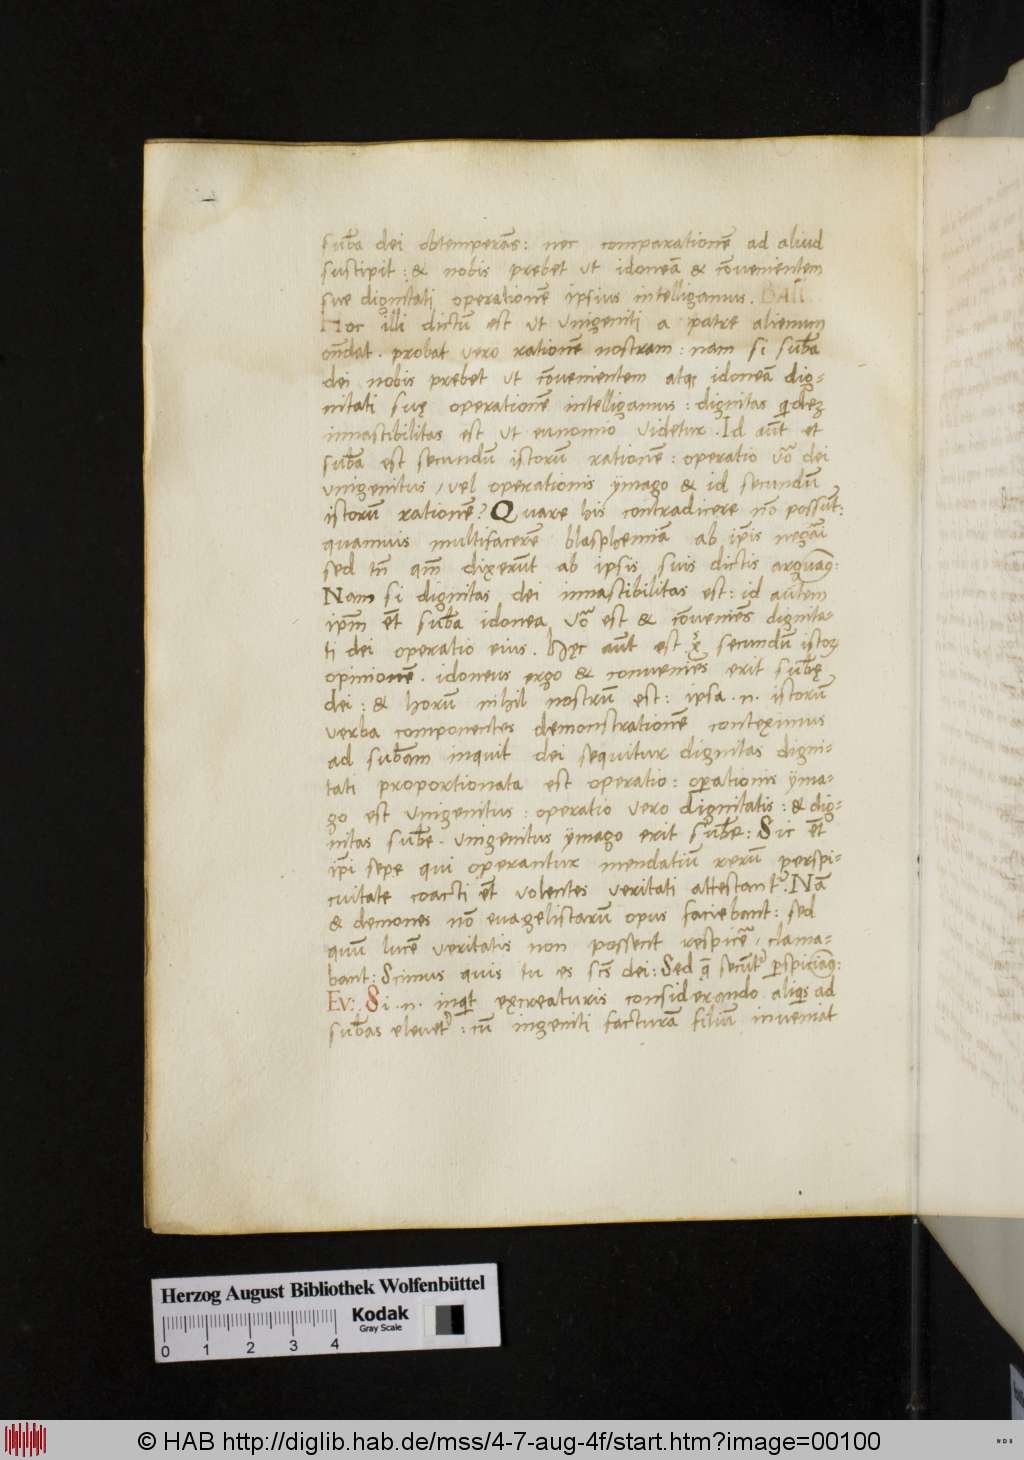 subᷓa dei obtemperās: nec comparationē ad aliud
suscipit: & nobis prebet ut idoneā & cōvenientem
sue dignitati operationē ipsius intelligamus. BASI
Hoc illi dictū est ut unigeniti a patre alienum
on̄dat. probat vero rationē nostram: nam si subᷓa
dei nobis prebet ut cōvenientem atq; idoneā dig-
nitati suę operationē intelligamus: dignitas qͥdeꝫ
innascibilitas est ut eunomio videtur. Id aūt et
subᷓa est secundū istorū rationē: operatio ṽo dei
unigenitus, vel operationis ÿmago & id secundū
istorū rationē? Quare his contradicere nō possūt:
quamvis multifacerē blasphemiā ab ip̄is
sed tn̄ qm̄ dixerūt ab ipsis suis dictis
Nam si dignitas dei innascibilitas est: id autem
ip̄m ēt subᷓa idonea ṽo est & cōveniēs dignita-
ti dei operatio eius. Hęc aūt est secundū istoꝝ
opinionē. idoneus ergo & conveniēs erit subᷓę
dei: & horū nihil nostrū est: ipsa .n. istorū
verba componentes demonstrationē conteximus
ad subᷓam inquit dei sequitur dignitas digni-
tati proportionata est operatio: oꝑationis ÿma-
go est unigenitus: operatio vero dignitatis: & dig-
nitas subᷓe. unigenitus ÿmago erit subᷓe: Sic ēt
ip̄i sepe qui operantur mendatiū rerū perspi-
cuitate coacti ēt volentes veritati attestant̄. Nā
& demones nō evagelistarū opus faciebant: sed
quū lucē veritatis non possent respicē, clama-
bant: Scimus quis tu es scs̄ dei: Sed
EV: Si .n. inqͥt exçreaturis considerando aliqͥs ad
subᷓas elevet̄: cū ingeniti facturā filiū inveniat
Herzog August Bibliothek Wolfenbüttel
Kodak
Gray Scale
0 1 2 3 4
© HAB http://diglib.hab.de/mss/4-7-aug-4f/start.htm?image=00100